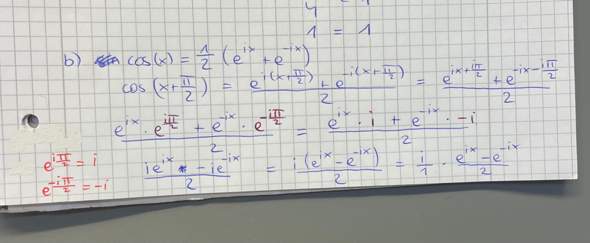 4
1 = 1
b) cos(x) = 1/2 (e^{ix} + e^{-ix})
cos(x + π/2) = (e^{i(x+π/2)} + e^{-i(x+π/2)})/2 = (e^{ix+iπ/2} + e^{-ix-iπ/2})/2
(e^{ix} · e^{iπ/2} + e^{-ix} · e^{-iπ/2})/2 = (e^{ix} · i + e^{-ix} · -i)/2
e^{iπ/2} = i
e^{-iπ/2} = -i
(ie^{ix} - ie^{-ix})/2 = i(e^{ix} - e^{-ix})/2 = i/1 · (e^{ix} - e^{-ix})/2